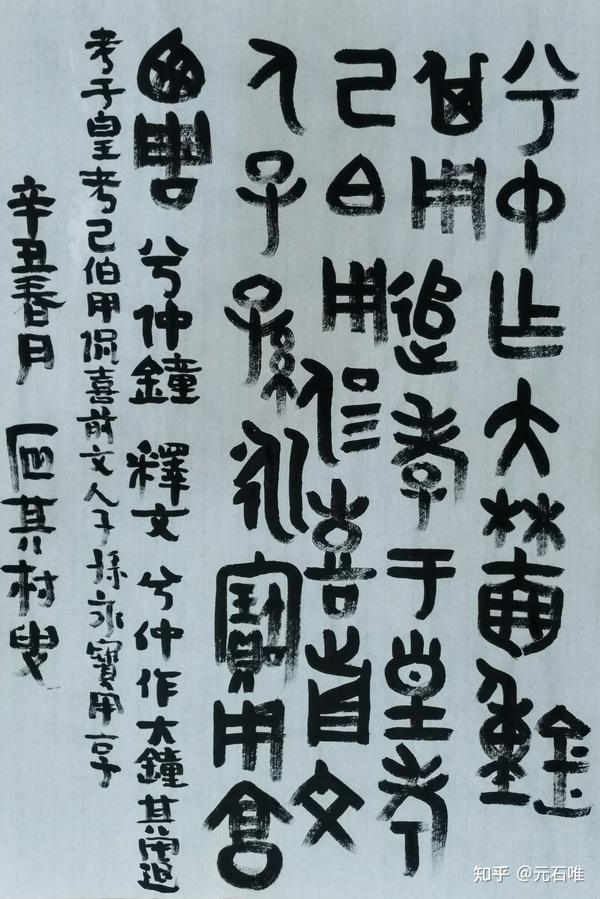 兮中乍大林鐘
其用追孝于皇考
己白用侃喜前文
人子孫永寶用享
西周 兮仲鐘 釋文 兮仲作大鐘其用追
考于皇考己伯用侃喜前文人子孫永寶用享
辛丑春月 其村叟
知乎 @元石唯